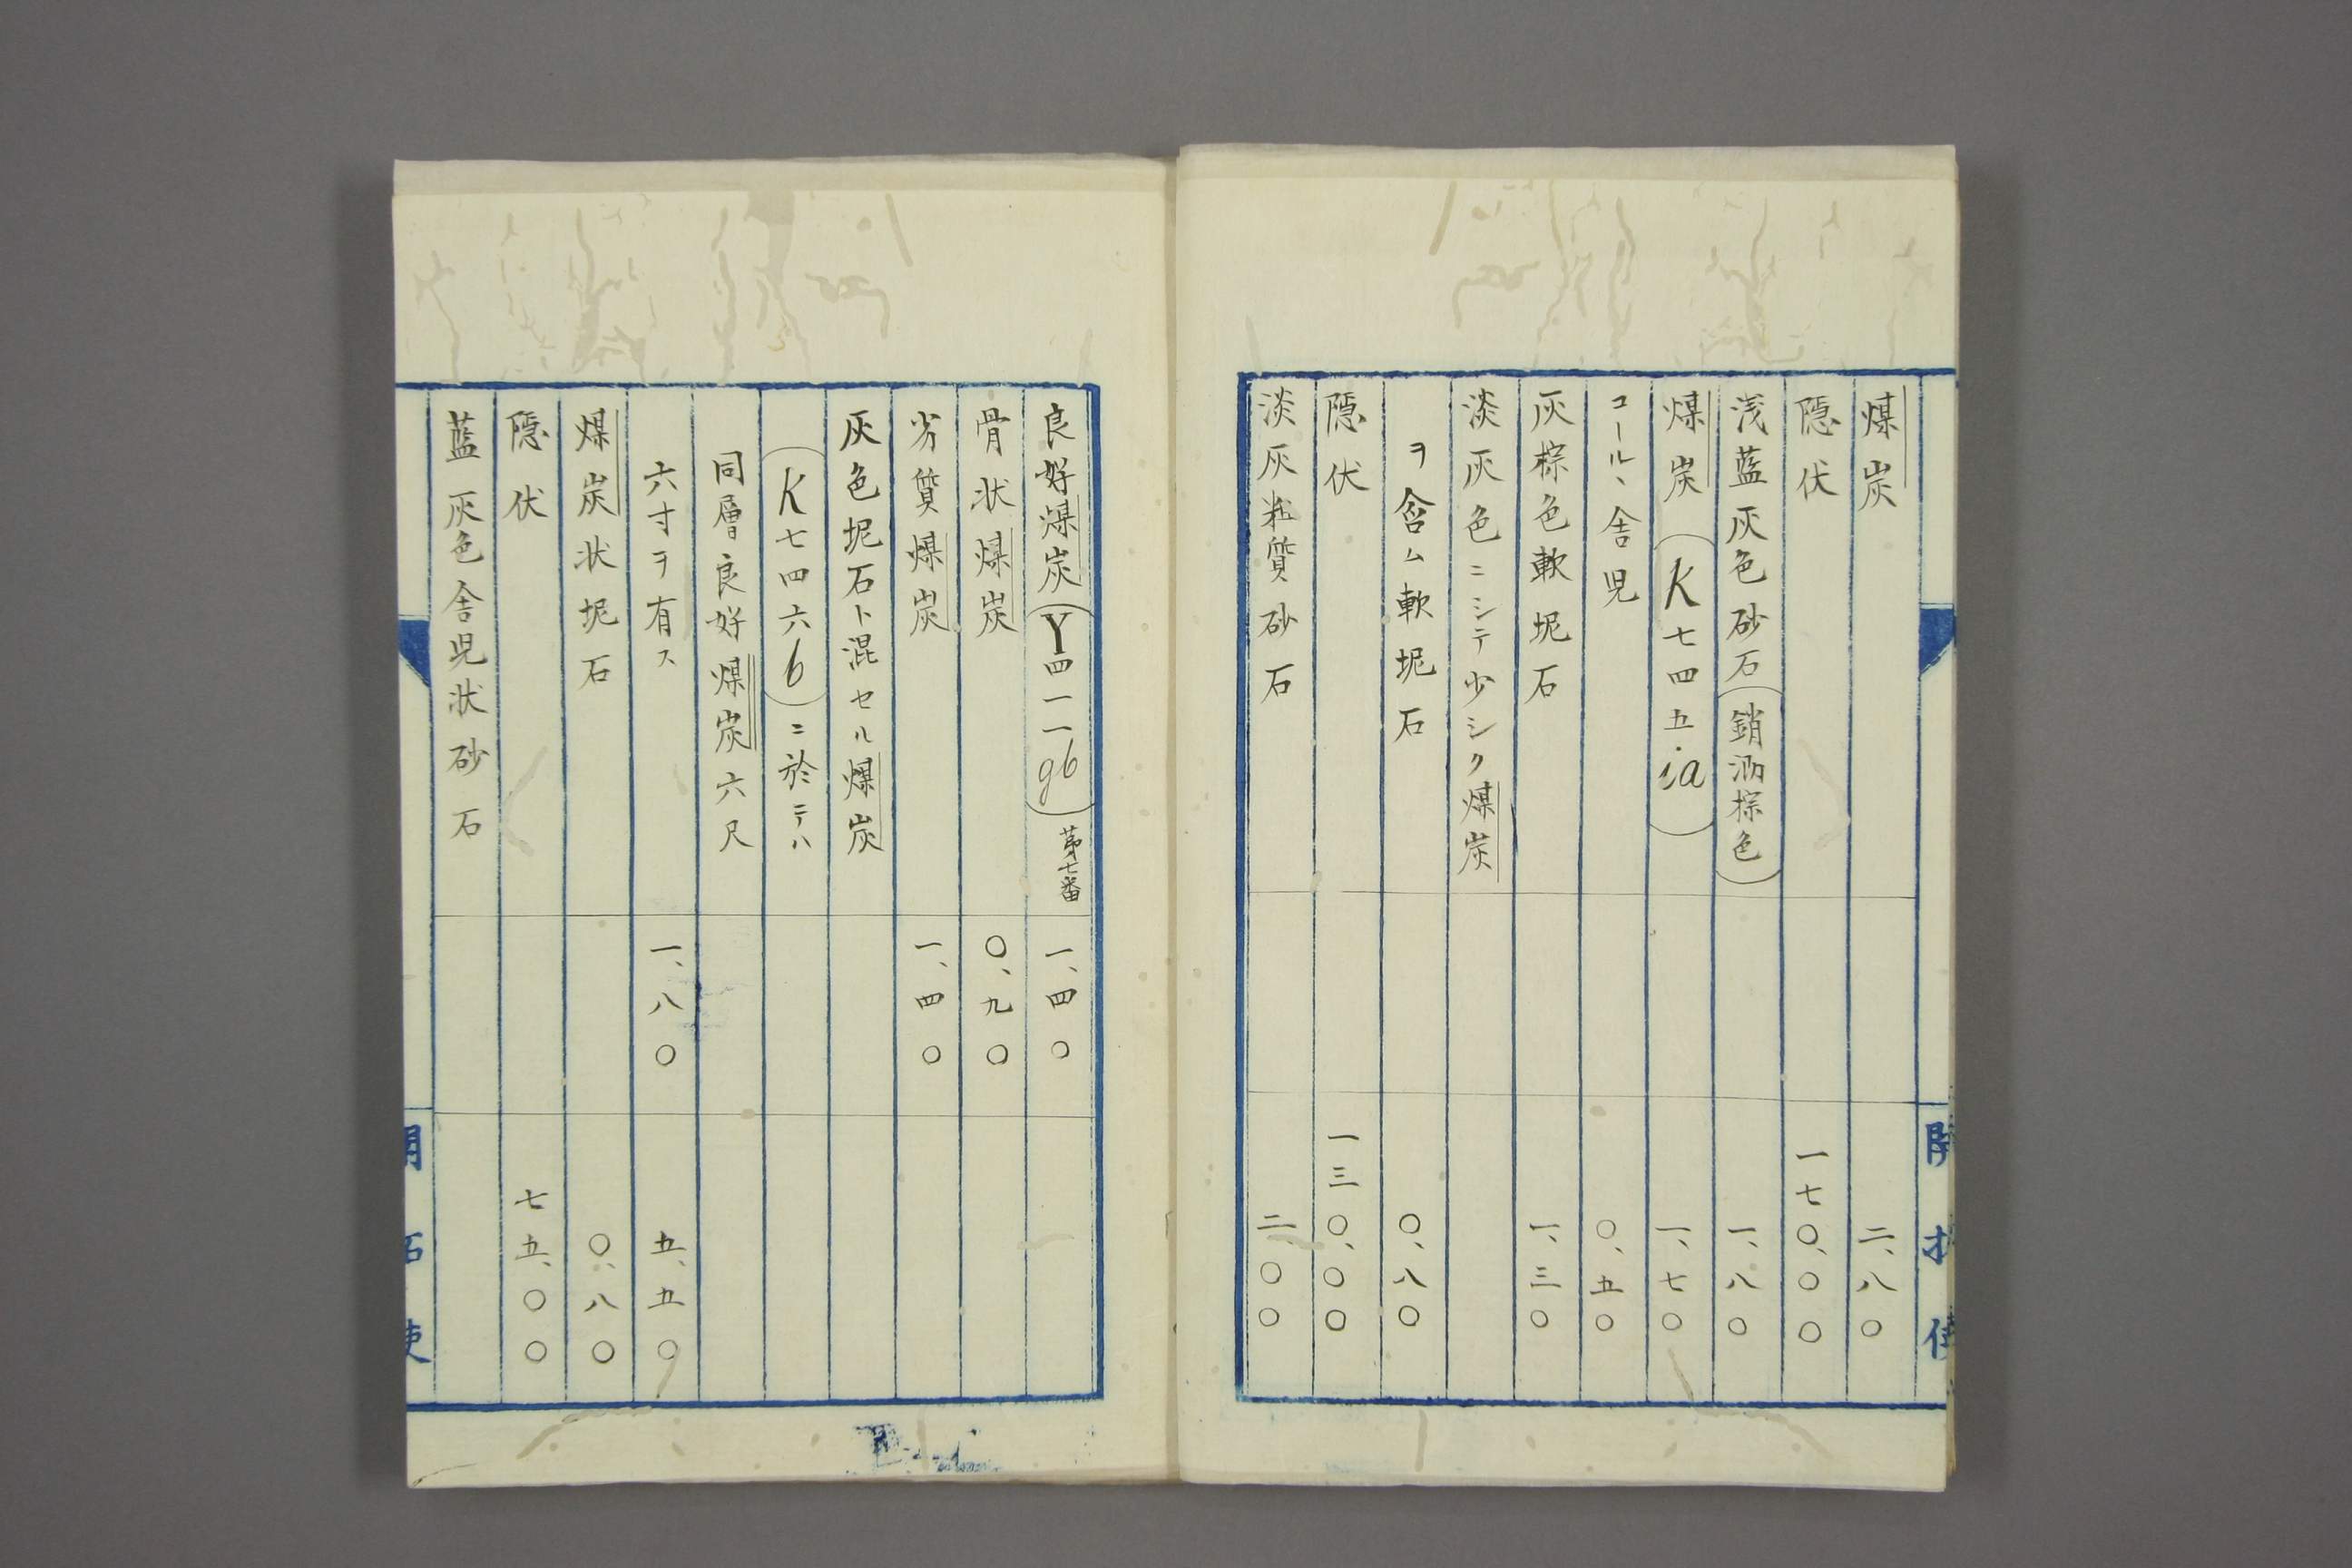 煤炭 二、八〇
隠伏 一七〇、〇〇
浅藍灰色砂石(銷沕棕色) 一、八〇
煤炭(K七四五ia) 一、七〇
コール、舎児 〇、五〇
灰棕色軟坭石 一、三〇
淡灰色ニシテ少シク煤炭
ヲ含ム軟坭石 〇、八〇
隠伏 一三〇、〇〇
淡灰粒質砂石 二、〇〇
良好煤炭(Y四一一gb)第七番 一、四〇
骨状煤炭 〇、九〇
劣質煤炭 一、四〇
灰色坭石ト混セル煤炭
(K七四六b)ニ於テハ
同層良好煤炭六尺
六寸ヲ有ス 一、八〇 五、五〇
煤炭状坭石 〇、八〇
隠伏 七五、〇〇
藍灰色舎児状砂石
開拓使